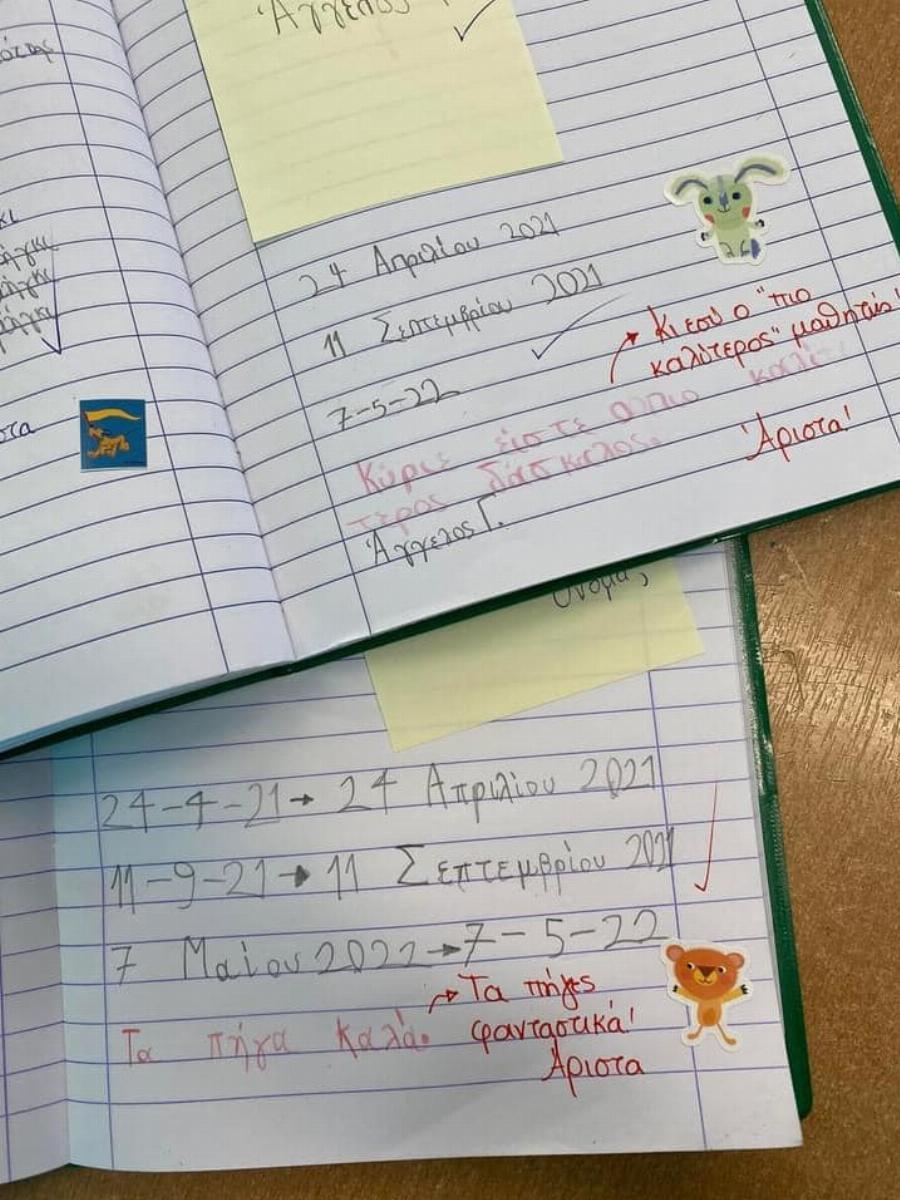 Άγγελος
24 Απριλίου 2021
11 Σεπτεμβρίου 2021
7-5-22
Κι εσύ ο "πιο
καλύτερος" μαθητής!
Κύριε είστε ο πιο καλύ-
τερος δάσκαλος.
Άριστα!
Άγγελος Γ.
Όνομα;
24-4-21→ 24 Απριλίου 2021
11-9-21→ 11 Σεπτεμβρίου 2021
7 Μαΐου 2022→7-5-22
Τα πήγα καλά.
Τα πήγες
φανταστικά!
Άριστα